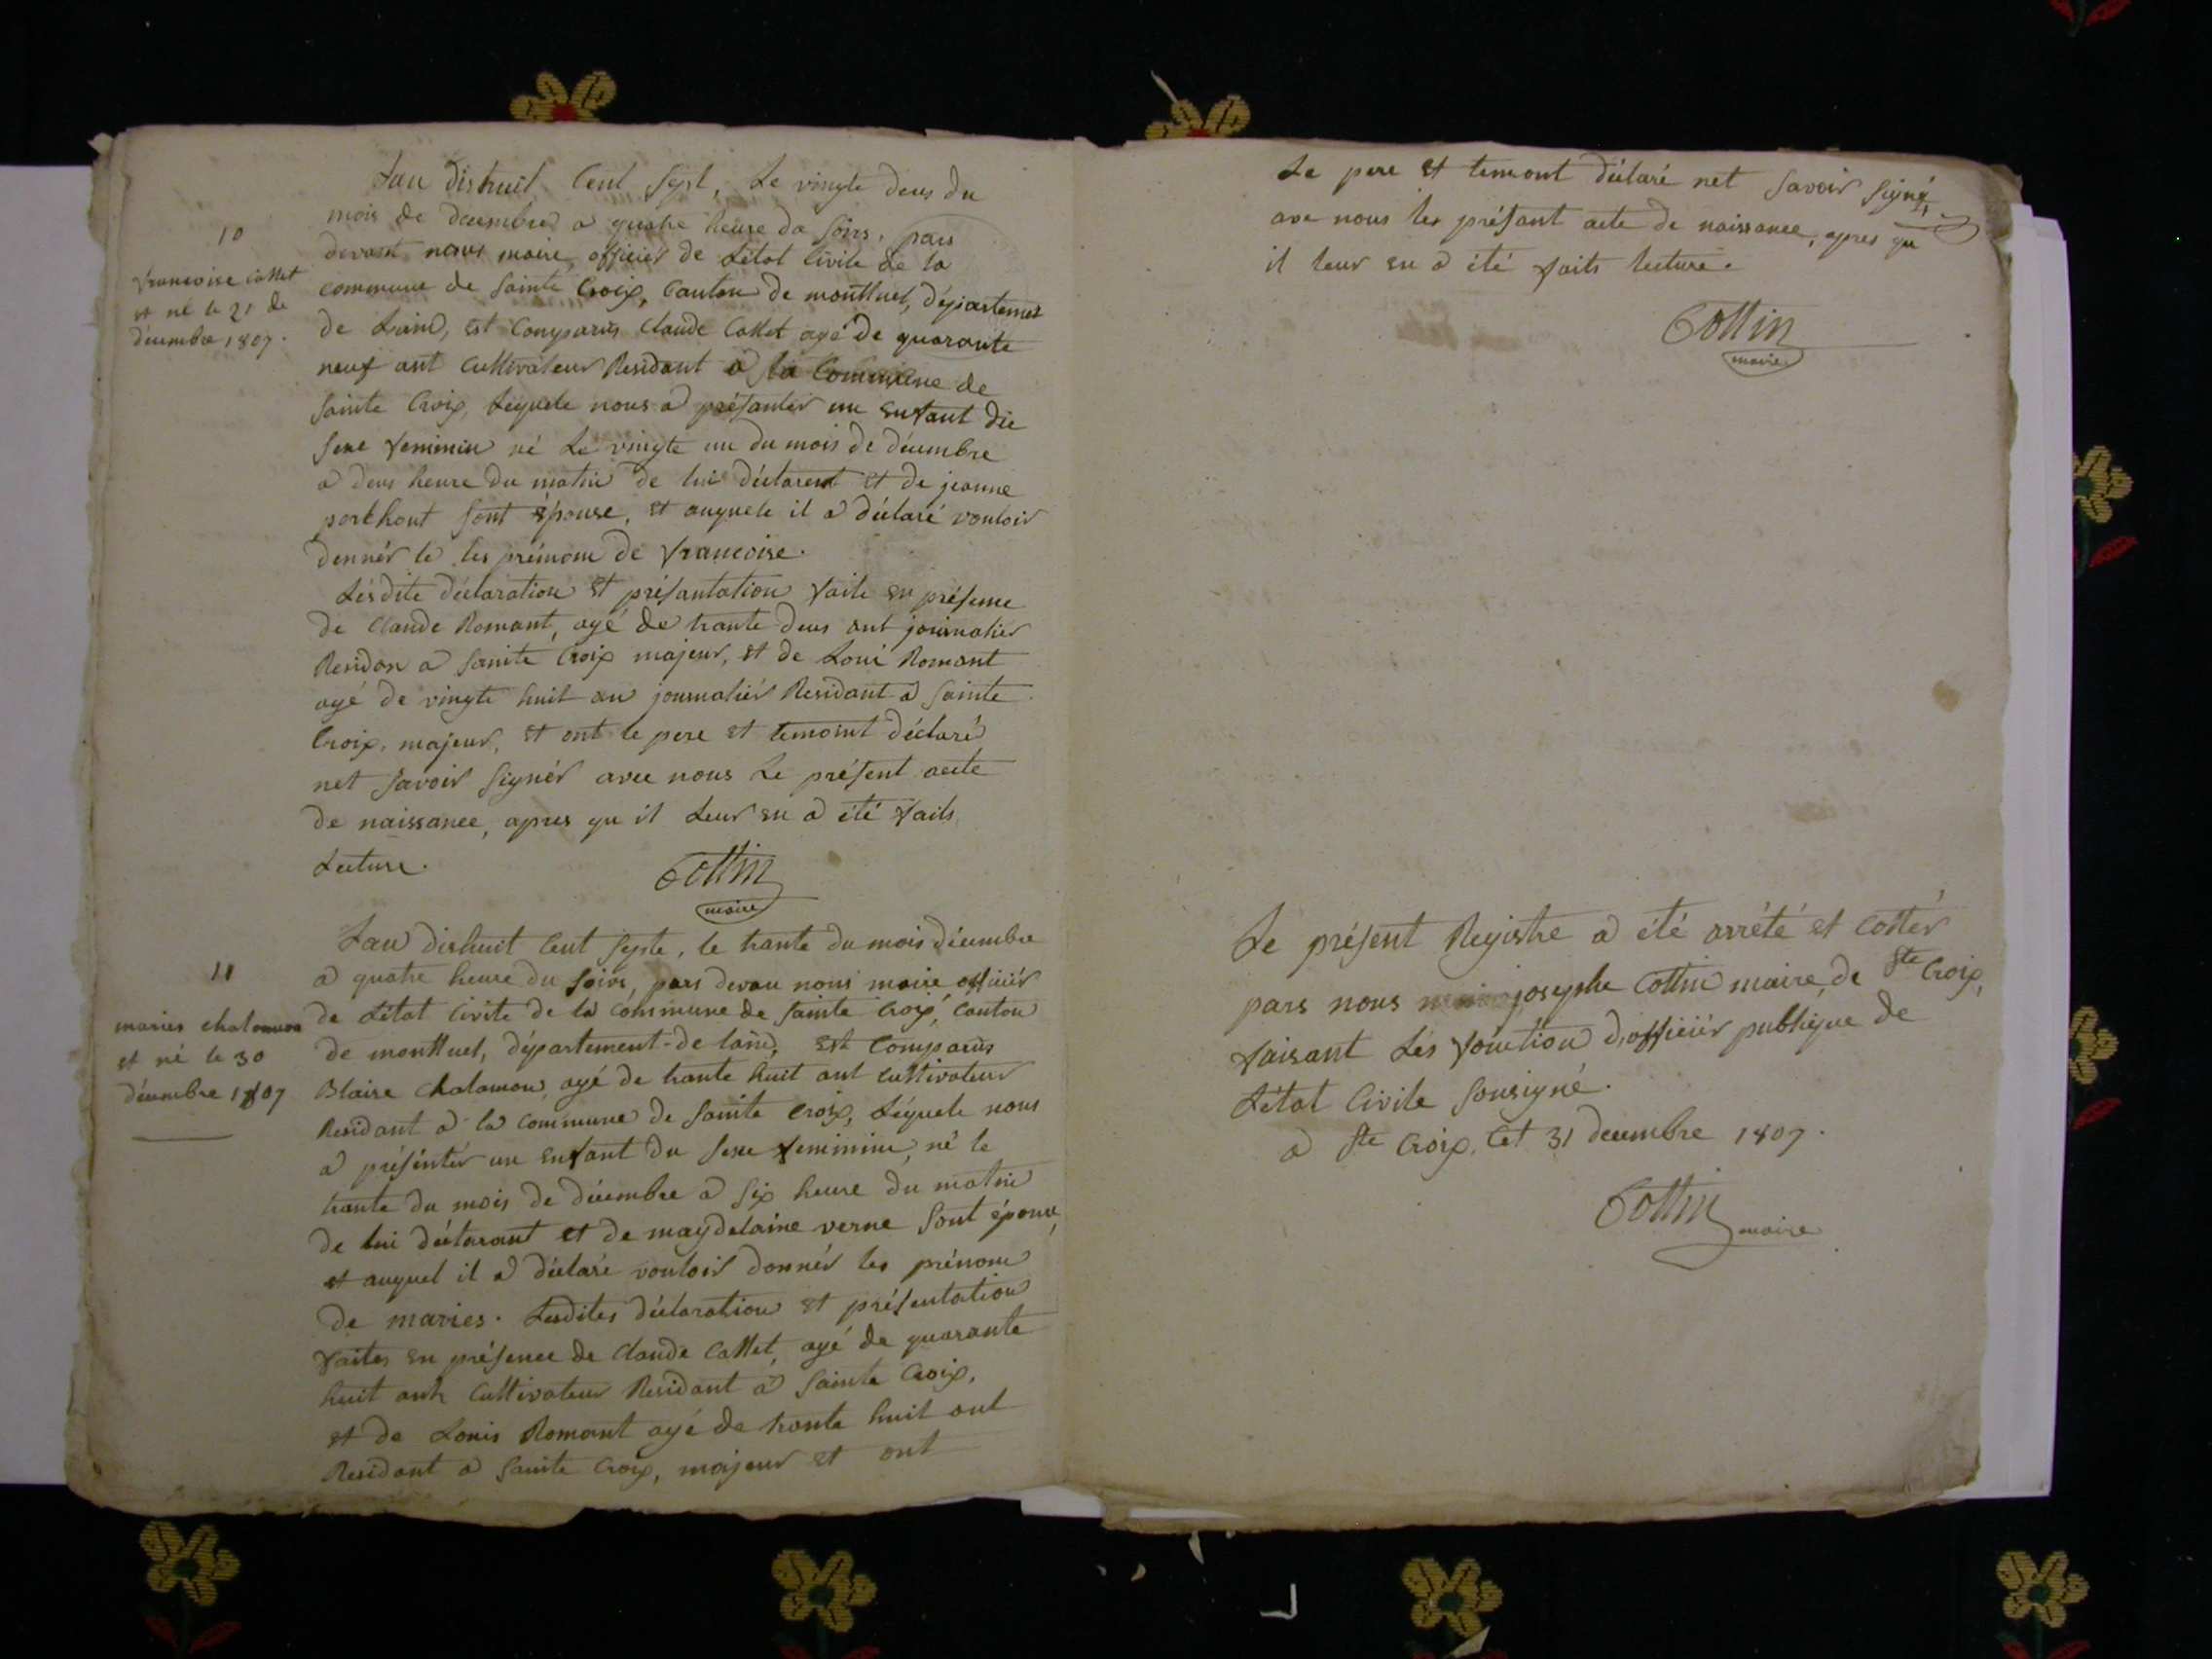 10
francoise Collet
et né le 21 de
décembre 1807.
Lan dishuit Cent Sept, Le vingte deus du
mois de decembre a quatre heure da soirs, pars
devant nous maire, officier de Létat Civile de la
commune de Sainte Croix, Canton de montluel, département
de Laind, est Comparus Claude Collet agé de quarante
neuf ant Cultivateur Residant a la Commune de
Sainte Croix, Lequele nous a présanter un Enfant du
sexe feminin né Le vingte un du mois de décembre
a deus heure du matin de lui déclarent et de jeanne
porthout sont épouse, et auquele il a déclaré vouloir
dennér le les prénom de francoise.
Lésdite déclaration et présantation faite en présence
de Claude Romant, agé de trante deus ant journalier
Residan a sainte Croix majeur, et de Loui Romant
agé de vingte huit an journaliér Residant a sainte
Croix, majeur, et ont le pere et temoint déclaré
net savoir signér avec nous Le présent acte
de naissance, apres qu il Leur en a été faits
Lecture.
Cottin
maire
11
maries chalamon
et né le 30
décembre 1807
Lan dishuit Cent septe, le trante du mois décembre
a quatre heure du soirs, pars devan nous maire officiér
de Létat Civile de la commune de sainte Croix, Canton
de montluel, département de laind, est Comparus
Blaise Chalamon, agé de trante huit ant cultivateur
Residant a la commune de sainte Croix, Léquele nous
a présentér un enfant du sexe feminine, né le
trante du mois de décembre a six heure du matin
de lui déclarant et de magdelaine verne sont épouse,
et auquel il a déclaré vouloir donnér les prénom
de maries. Lesdites déclaration et présentation
faites en présence de Claude Collet, agé de quarante
huit ant Cultivateur Residant a sainte Croix,
et de Louis Romant agé de trante huit ant
Residant a sainte Croix, majeur et ont
Le pere et temont déclaré net savoir signé,
ave nous les présant acte de naissance, apres qu
il leur en a été faits lecture.
Cottin
maire
Le présent Registre a été arrété et Cottér
pars nous josephe Cottin maire, de Ste Croix,
faisant Lés fonction d'officiér publique de
Létat Civile sousigné.
a Ste Croix, Cet 31 decembre 1807.
Cottin
maire